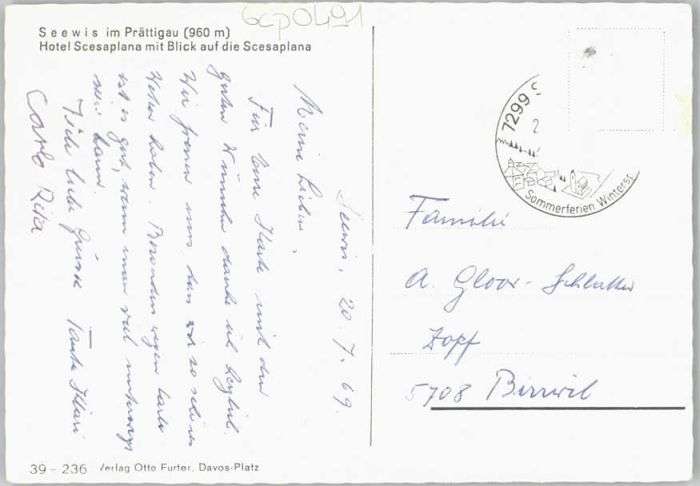 6cp0491
Seewis im Prättigau (960 m)
Hotel Scesaplana mit Blick auf die Scesaplana
7299 S
2
Sommerferien Winters
Seewis, 20. 7. 69.
Meine Lieben,
Für Eure Karte mit den
guten Wünschen danke ich herzlich.
Wir freuen uns dass wir so schönes
Wetter haben. Besonders wegen Carlo
ist es gut, wenn man viel unterwegs
sein kann
Viele liebe Grüsse Tante
Carlo Rita
Familie
A. Gloor-Schlatter
Zopf
5708 Birrwil
39 - 236 Verlag Otto Furter, Davos-Platz